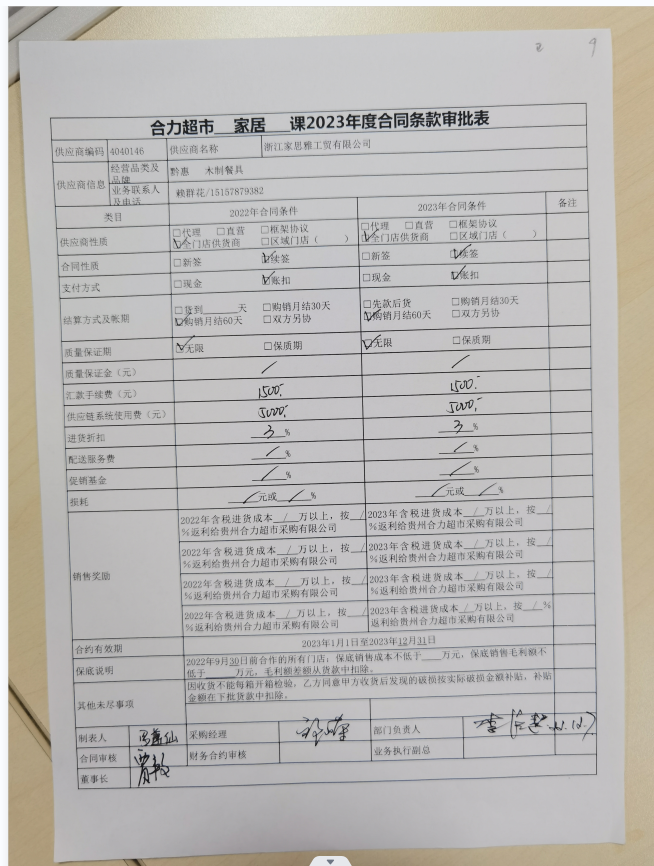 合力超市 家居 课2023年度合同条款审批表
供应商编码 4040146 供应商名称 浙江家思雅工贸有限公司
供应商信息 经营品类及品牌 黔惠 木制餐具
业务联系人及电话 赖群花/15157879382
类目 2022年合同条件 2023年合同条件 备注
供应商性质 □代理 □直营 □框架协议 □代理 □直营 □框架协议
☑全门店供货商 □区域门店( ) ☑全门店供货商 □区域门店( )
合同性质 □新签 ☑续签 □新签 ☑续签
支付方式 □现金 ☑账扣 □现金 ☑账扣
结算方式及帐期 □货到____天 □购销月结30天 □先款后货 □购销月结30天
☑购销月结60天 □双方另协 ☑购销月结60天 □双方另协
质量保证期 ☑无限 □保质期 ☑无限 □保质期
质量保证金(元) / /
汇款手续费(元) 1500.- 1500.-
供应链系统使用费(元) 5000.- 5000.-
进货折扣 3 % 3 %
配送服务费 / % / %
促销基金 / % / %
损耗 / 元或 / % / 元或 / %
销售奖励
2022年含税进货成本 / 万以上,按 / %返利给贵州合力超市采购有限公司 2023年含税进货成本 / 万以上,按 / %返利给贵州合力超市采购有限公司
2022年含税进货成本 / 万以上,按 / %返利给贵州合力超市采购有限公司 2023年含税进货成本 / 万以上,按 / %返利给贵州合力超市采购有限公司
2022年含税进货成本 / 万以上,按 / %返利给贵州合力超市采购有限公司 2023年含税进货成本 / 万以上,按 / %返利给贵州合力超市采购有限公司
2022年含税进货成本 / 万以上,按 / %返利给贵州合力超市采购有限公司 2023年含税进货成本 / 万以上,按 / %返利给贵州合力超市采购有限公司
合约有效期 2023年1月1日至2023年12月31日
保底说明 2022年9月30日前合作的所有门店:保底销售成本不低于____万元,保底销售毛利额不
低于____万元,毛利额差额从货款中扣除。
其他未尽事项 因收货不能每箱开箱检验,乙方同意甲方收货后发现的破损按实际破损金额补贴,补贴
金额在下批货款中扣除。
制表人 采购经理 部门负责人
合同审核 财务合约审核 业务执行副总
董事长